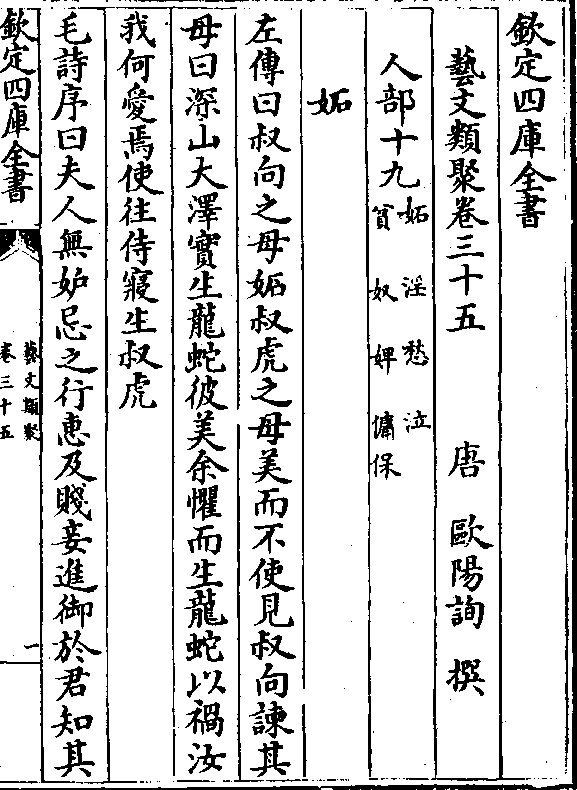 欽定四庫全書
藝文類聚卷三十五　唐　歐陽詢　撰
人部十九妬　淫　愁　泣
貧　奴　婢　傭保
妬
左傳曰叔向之母妬叔虎之母美而不使見叔向諫其
母曰深山大澤實生龍蛇彼美余懼而生龍蛇以禍汝
我何愛焉使往侍寢生叔虎
毛詩序曰夫人無妒忌之行惠及賤妾進御於君知其
欽定四庫全書
藝文類聚
卷三十五
一